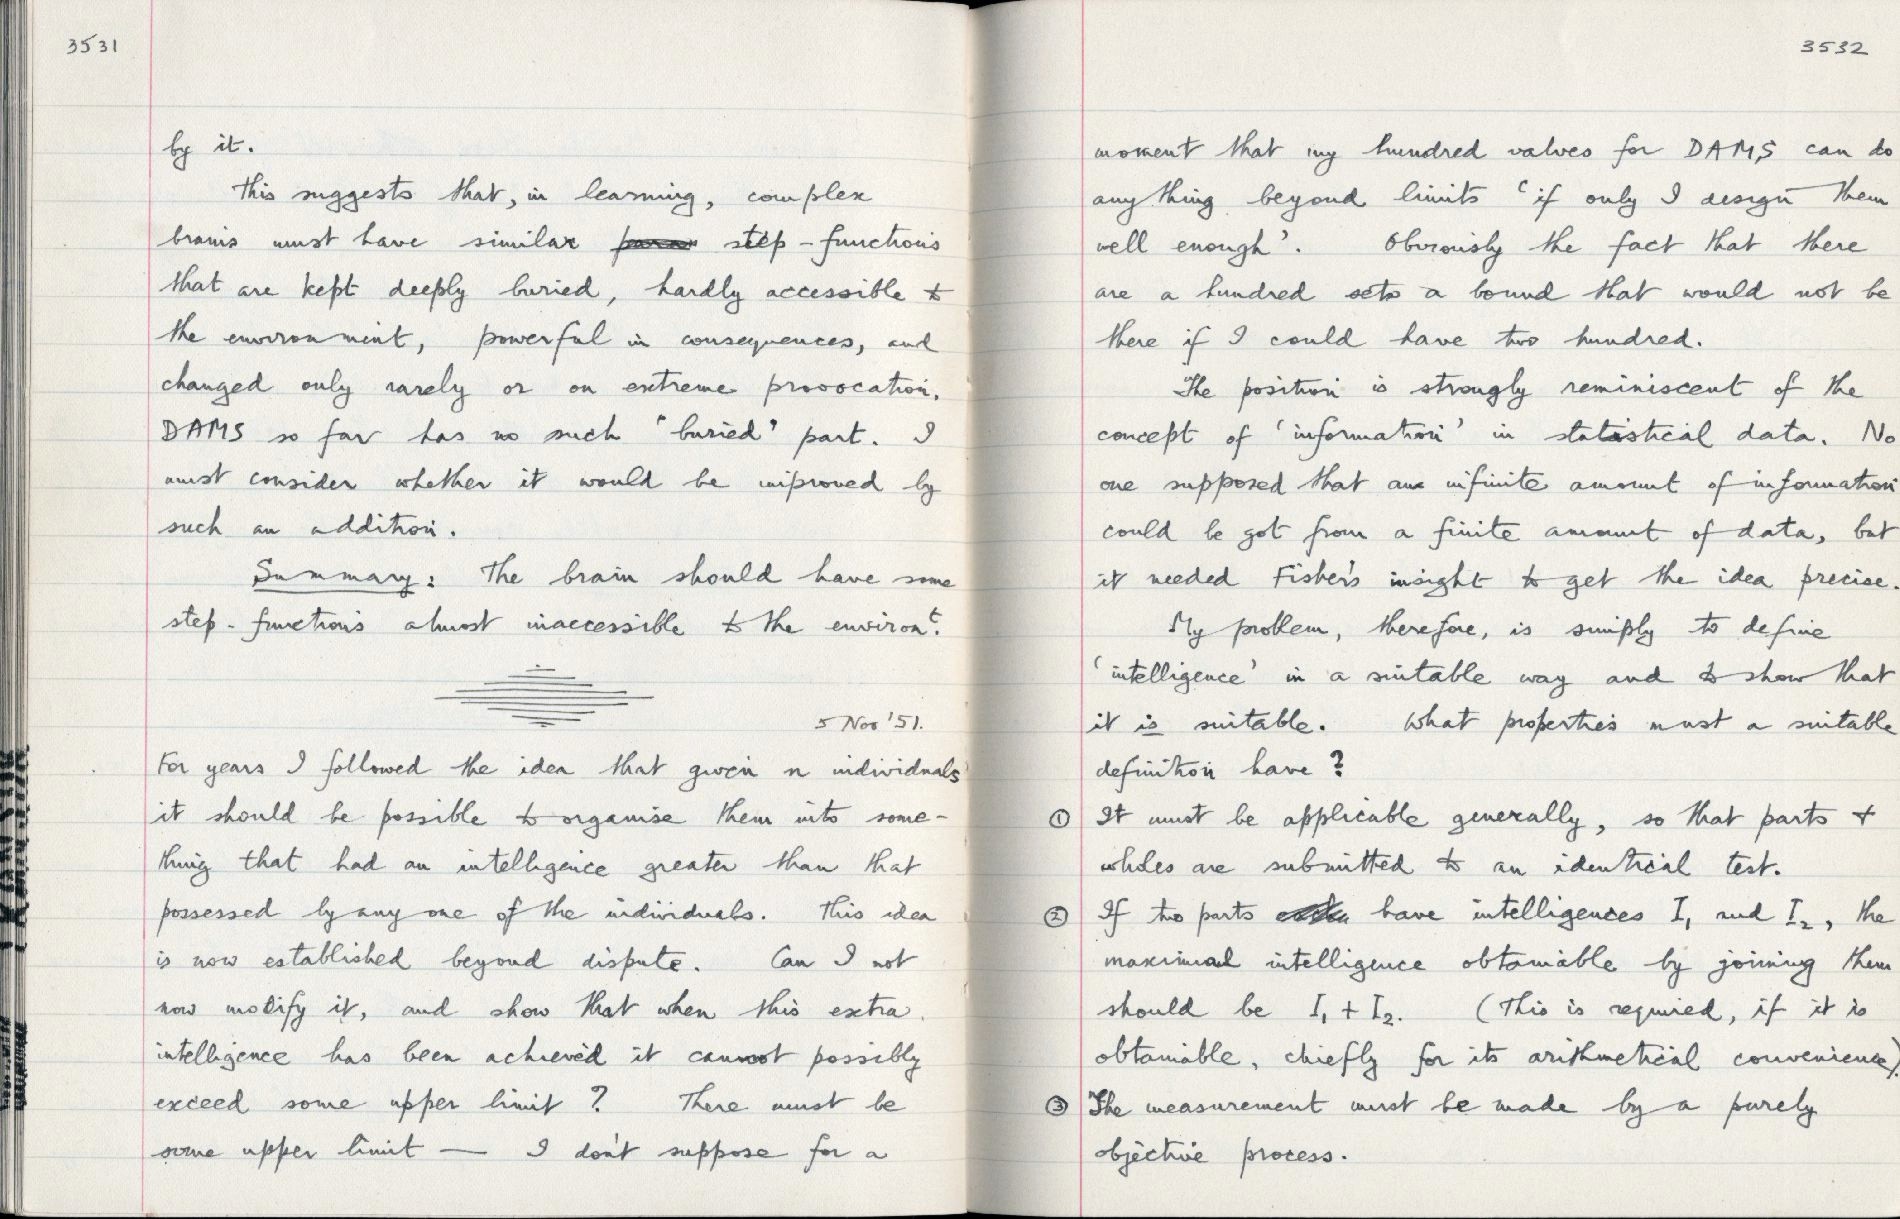 3531
by it.
This suggests that, in learning, complex
brains must have similar step-functions
that are kept deeply buried, hardly accessible to
the environment, powerful in consequences, and
changed only rarely or on extreme provocation.
DAMS so far has no such "buried" part. I
must consider whether it would be improved by
such an addition.
Summary: The brain should have some
step-functions almost inaccessible to the environt.
5 Nov '51.
For years I followed the idea that given n individuals
it should be possible to organise them into some-
thing that had an intelligence greater than that
possessed by any one of the individuals. This idea
is now established beyond dispute. Can I not
now modify it, and show that when this extra
intelligence has been achieved it cannot possibly
exceed some upper limit? There must be
some upper limit — I don't suppose for a
3532
moment that my hundred valves for DAMS can do
anything beyond limits 'if only I design them
well enough'. Obviously the fact that there
are a hundred sets a bound that would not be
there if I could have two hundred.
The position is strongly reminiscent of the
concept of 'information' in statistical data. No
one supposed that an infinite amount of information
could be got from a finite amount of data, but
it needed Fisher's insight to get the idea precise.
My problem, therefore, is simply to define
'intelligence' in a suitable way and to show that
it is suitable. What properties must a suitable
definition have?
① It must be applicable generally, so that parts +
wholes are submitted to an identical test.
② If two parts have intelligences I₁ and I₂, the
maximal intelligence obtainable by joining them
should be I₁ + I₂. (This is required, if it is
obtainable, chiefly for its arithmetical convenience).
③ The measurement must be made by a purely
objective process.